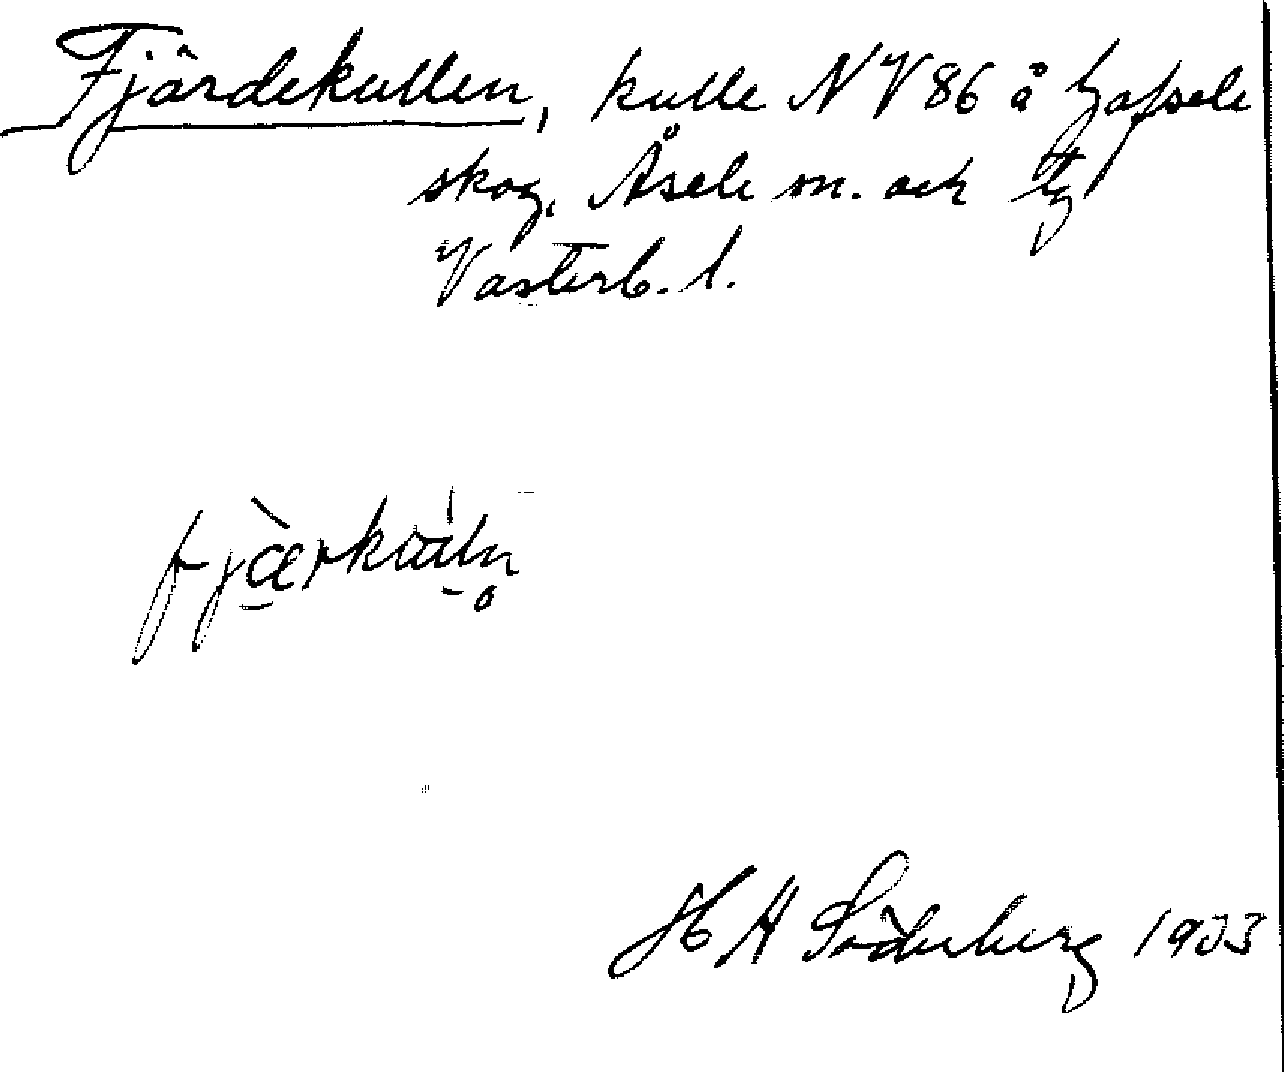 Fjärdekullen, kulle NV86 å Hafsele
skog, Åsele sn. och tg
Västerb. l.
H A Söderberg 1933